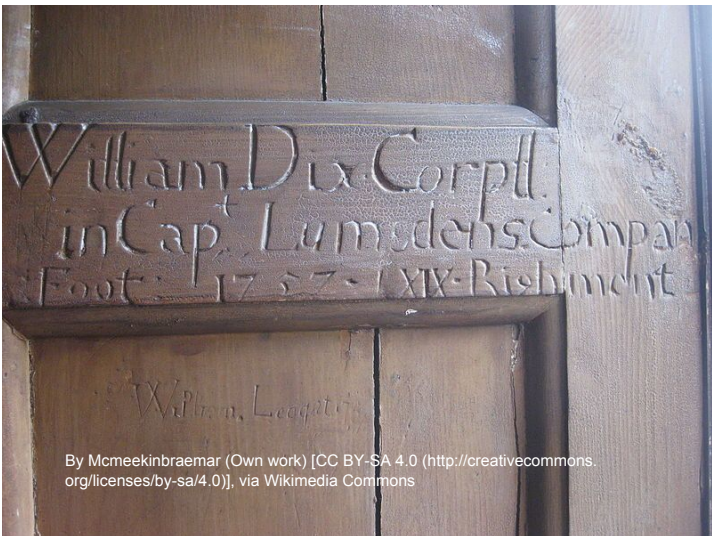 William Dix Corpll.
in Capt. Lumsdens Compan
Foot: 1757 - XIX Righment
By Mcmeekinbraemar (Own work) [CC BY-SA 4.0 (http://creativecommons.
org/licenses/by-sa/4.0)], via Wikimedia Commons